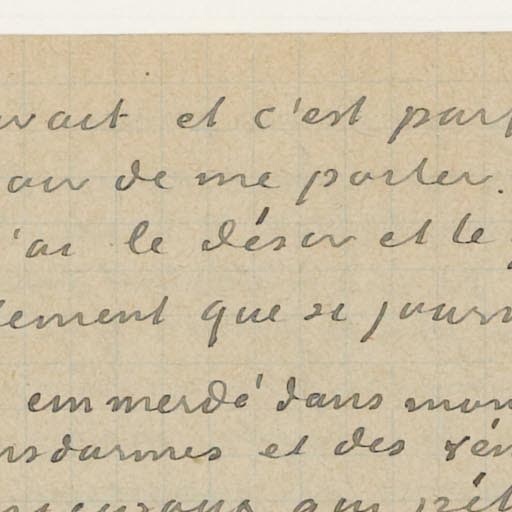 vait et c'est parf
our de me parler.
'ai le désir et le
lement que si journ
emmerdé dans mon
nsdarmes et des rén
qui pét